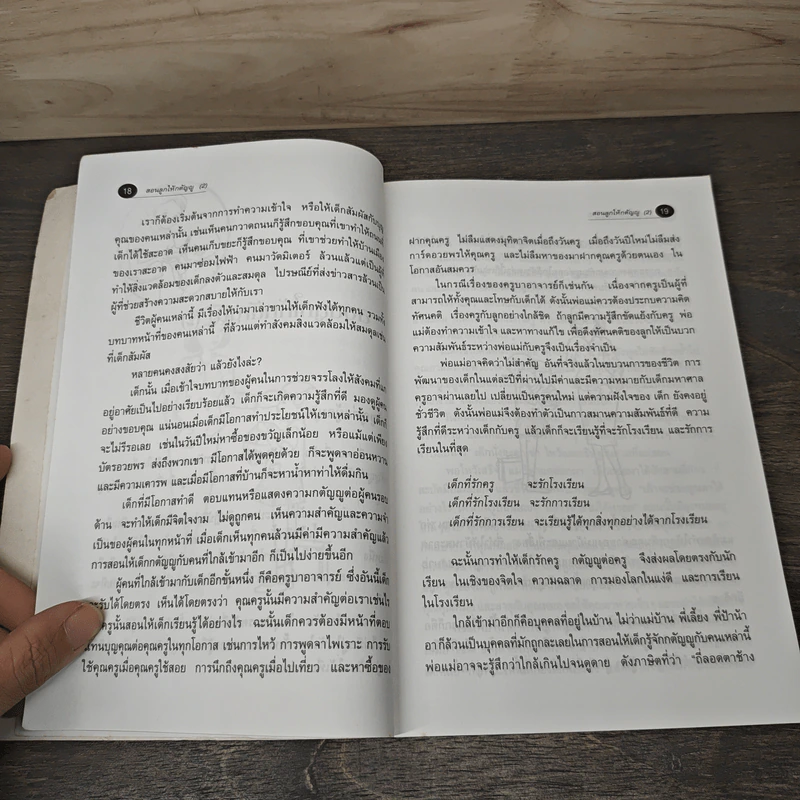 18 สอนลูกให้กตัญญู (2)
เราก็ต้องเริ่มต้นจากการทำความเข้าใจ หรือให้เด็กสัมผัสกับ
คุณของคนเหล่านั้น เช่นเห็นคนกวาดถนนก็รู้สึกขอบคุณที่เขาทำให้ถนนที่
เด็กได้ใช้สะอาด เห็นคนเก็บขยะก็รู้สึกขอบคุณ ที่เขาช่วยทำให้บ้านเมือง
ของเราสะอาด คนมาซ่อมไฟฟ้า คนมาวัดมิเตอร์ ล้วนแล้วแต่เป็นผู้ที่
ทำให้สิ่งแวดล้อมของเด็กลงตัวและสมดุล ไปรษณีย์ที่ส่งข่าวสารล้วนเป็น
ผู้ที่ช่วยสร้างความสะดวกสบายให้กับเรา
ชีวิตผู้คนเหล่านี้ มีเรื่องให้นำมาเล่าขานให้เด็กฟังได้ทุกคน รวมทั้ง
บทบาทหน้าที่ของคนเหล่านี้ ที่ล้วนแต่ทำสังคมสิ่งแวดล้อมให้สมดุลเช่น
ที่เด็กสัมผัส
หลายคนคงสงสัยว่า แล้วยังไงล่ะ?
เด็กนั้น เมื่อเข้าใจบทบาทของผู้คนในการช่วยจรรโลงให้สังคมที่แก
อยู่อาศัยเป็นไปอย่างเรียบร้อยแล้ว เด็กก็จะเกิดความรู้สึกที่ดี มองดูผู้คน
อย่างขอบคุณ แน่นอนเมื่อเด็กมีโอกาสทำประโยชน์ให้เขาเหล่านั้น เด็กก็
จะไม่รีรอเลย เช่นในวันปีใหม่หาซื้อของขวัญเล็กน้อย หรือแม้แต่เพียง
บัตรอวยพร ส่งถึงพวกเขา มีโอกาสได้พูดคุยด้วย ก็จะพูดจาอ่อนหวาน
และมีความเคารพ และเมื่อมีโอกาสที่บ้านก็จะหาน้ำหาท่าให้ดื่มกิน
เด็กที่มีโอกาสทำดี ตอบแทนหรือแสดงความกตัญญูต่อผู้คนรอบ
ด้าน จะทำให้เด็กมีจิตใจงาม ไม่ดูถูกคน เห็นความสำคัญและความจำ
เป็นของผู้คนในทุกหน้าที่ เมื่อเด็กเห็นทุกคนล้วนมีค่ามีความสำคัญแล้ว
การสอนให้เด็กกตัญญูกับคนที่ใกล้เข้ามาอีก ก็เป็นไปง่ายขึ้นอีก
ผู้คนที่ใกล้เข้ามากับเด็กอีกขั้นหนึ่ง ก็คือครูบาอาจารย์ ซึ่งอันนี้เด็ก
จะรับได้โดยตรง เห็นได้โดยตรงว่า คุณครูนั้นมีความสำคัญต่อเราเช่นไร
ครูนั้นสอนให้เด็กเรียนรู้ได้อย่างไร ฉะนั้นเด็กควรต้องมีหน้าที่ตอบ
แทนบุญคุณต่อคุณครูในทุกโอกาส เช่นการไหว้ การพูดจาไพเราะ การรับ
ใช้คุณครูเมื่อคุณครูใช้สอย การนึกถึงคุณครูเมื่อไปเที่ยว และหาซื้อของ
สอนลูกให้กตัญญู (2) 19
ฝากคุณครู ไม่ลืมแสดงมุทิตาจิตเมื่อถึงวันครู เมื่อถึงวันปีใหม่ไม่ลืมส่ง
การ์ดอวยพรให้คุณครู และไม่ลืมหาของมาฝากคุณครูด้วยตนเอง ใน
โอกาสอันสมควร
ในกรณีเรื่องของครูบาอาจารย์ก็เช่นกัน เนื่องจากครูเป็นผู้ที่
สามารถให้ทั้งคุณและโทษกับเด็กได้ ดังนั้นพ่อแม่ควรต้องประกบความคิด
ทัศนคติ เรื่องครูกับลูกอย่างใกล้ชิด ถ้าลูกมีความรู้สึกขัดแย้งกับครู พ่อ
แม่ต้องทำความเข้าใจ และหาทางแก้ไข เพื่อดึงทัศนคติของลูกให้เป็นบวก
ความสัมพันธ์ระหว่างพ่อแม่กับครูจึงเป็นเรื่องจำเป็น
พ่อแม่อาจคิดว่าไม่สำคัญ อันที่จริงแล้วในขบวนการของชีวิต การ
พัฒนาของเด็กในแต่ละปีที่ผ่านไปมีค่าและมีความหมายกับเด็กมหาศาล
ครูอาจผ่านเลยไป เปลี่ยนเป็นครูคนใหม่ แต่ความฝังใจของ เด็ก ยังคงอยู่
ชั่วชีวิต ดังนั้นพ่อแม่จึงต้องทำตัวเป็นกาวสมานความสัมพันธ์ที่ดี ความ
รู้สึกที่ดีระหว่างเด็กกับครู แล้วเด็กก็จะเรียนรู้ที่จะรักโรงเรียน และรักการ
เรียนในที่สุด
เด็กที่รักครู จะรักโรงเรียน
เด็กที่รักโรงเรียน จะรักการเรียน
เด็กที่รักการเรียน จะเรียนรู้ได้ทุกสิ่งทุกอย่างได้จากโรงเรียน
ฉะนั้นการทำให้เด็กรักครู กตัญญูต่อครู จึงส่งผลโดยตรงกับนัก
เรียน ในเชิงของจิตใจ ความฉลาด การมองโลกในแง่ดี และการเรียน
ในโรงเรียน
ใกล้เข้ามาอีกก็คือบุคคลที่อยู่ในบ้าน ไม่ว่าแม่บ้าน พี่เลี้ยง พี่ป้าน้า
อา ก็ล้วนเป็นบุคคลที่มักถูกละเลยในการสอนให้เด็กรู้จักกตัญญูกับคนเหล่านี้
พ่อแม่อาจจะรู้สึกว่าใกล้เกินไปจนดูดาย ดังภาษิตที่ว่า "ถี่ลอดตาช้าง